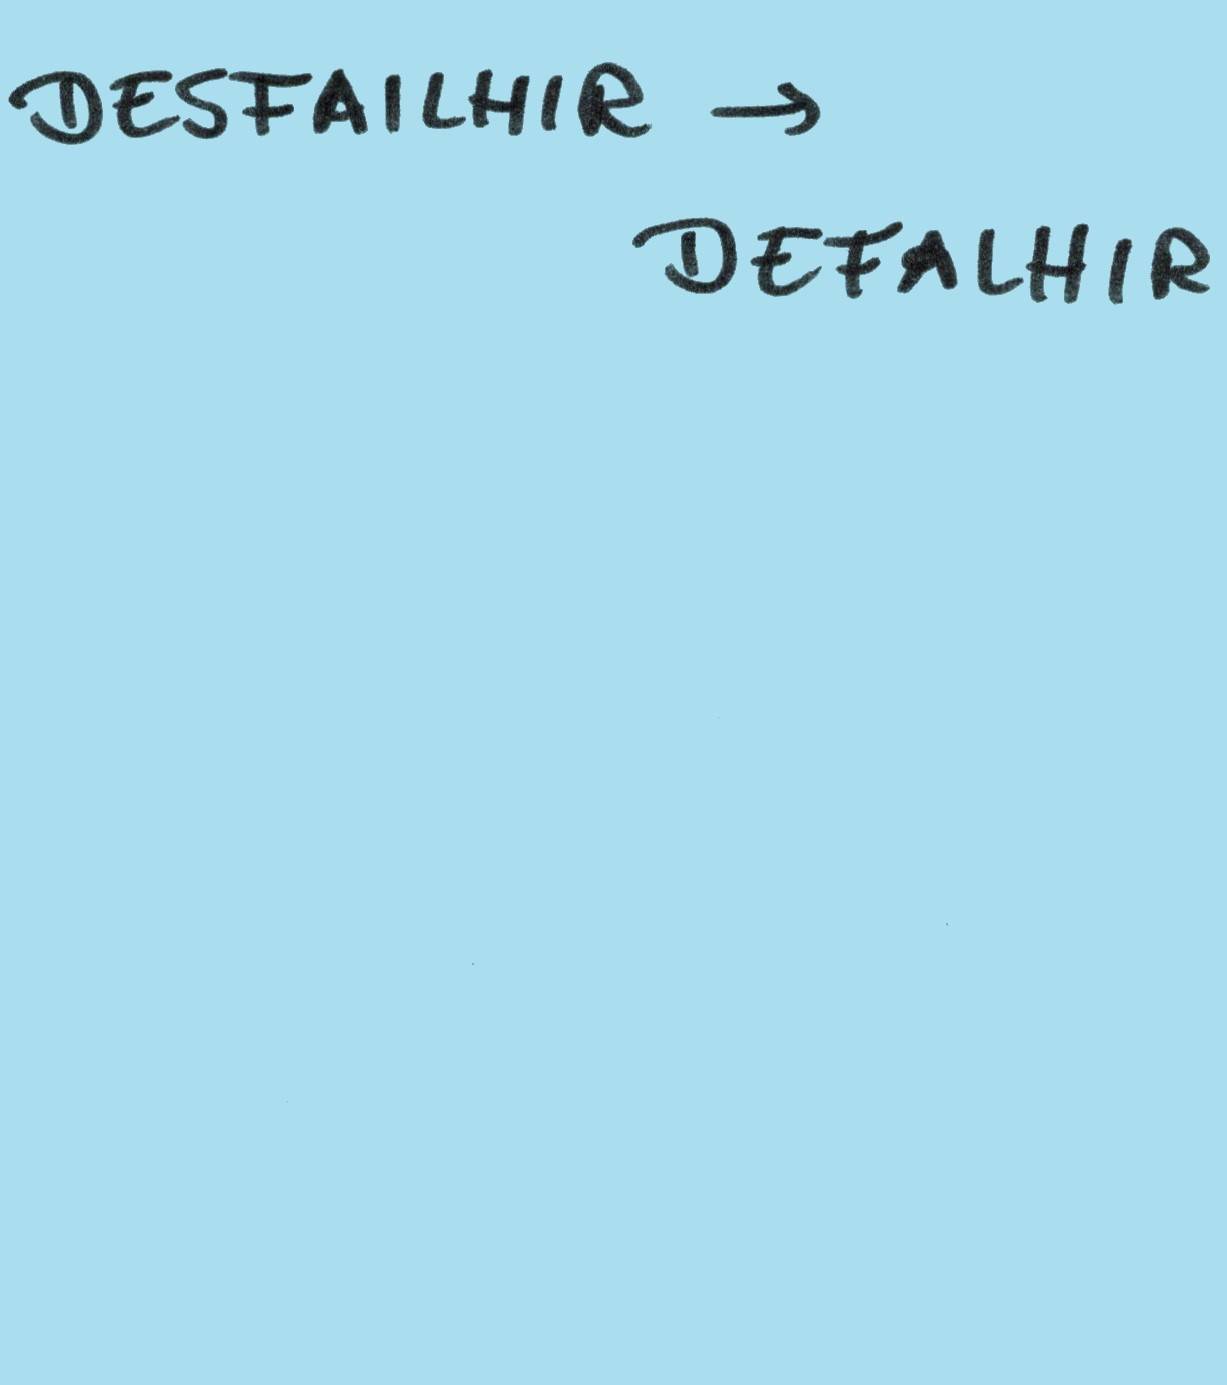 DESFAILHIR →
DEFALHIR